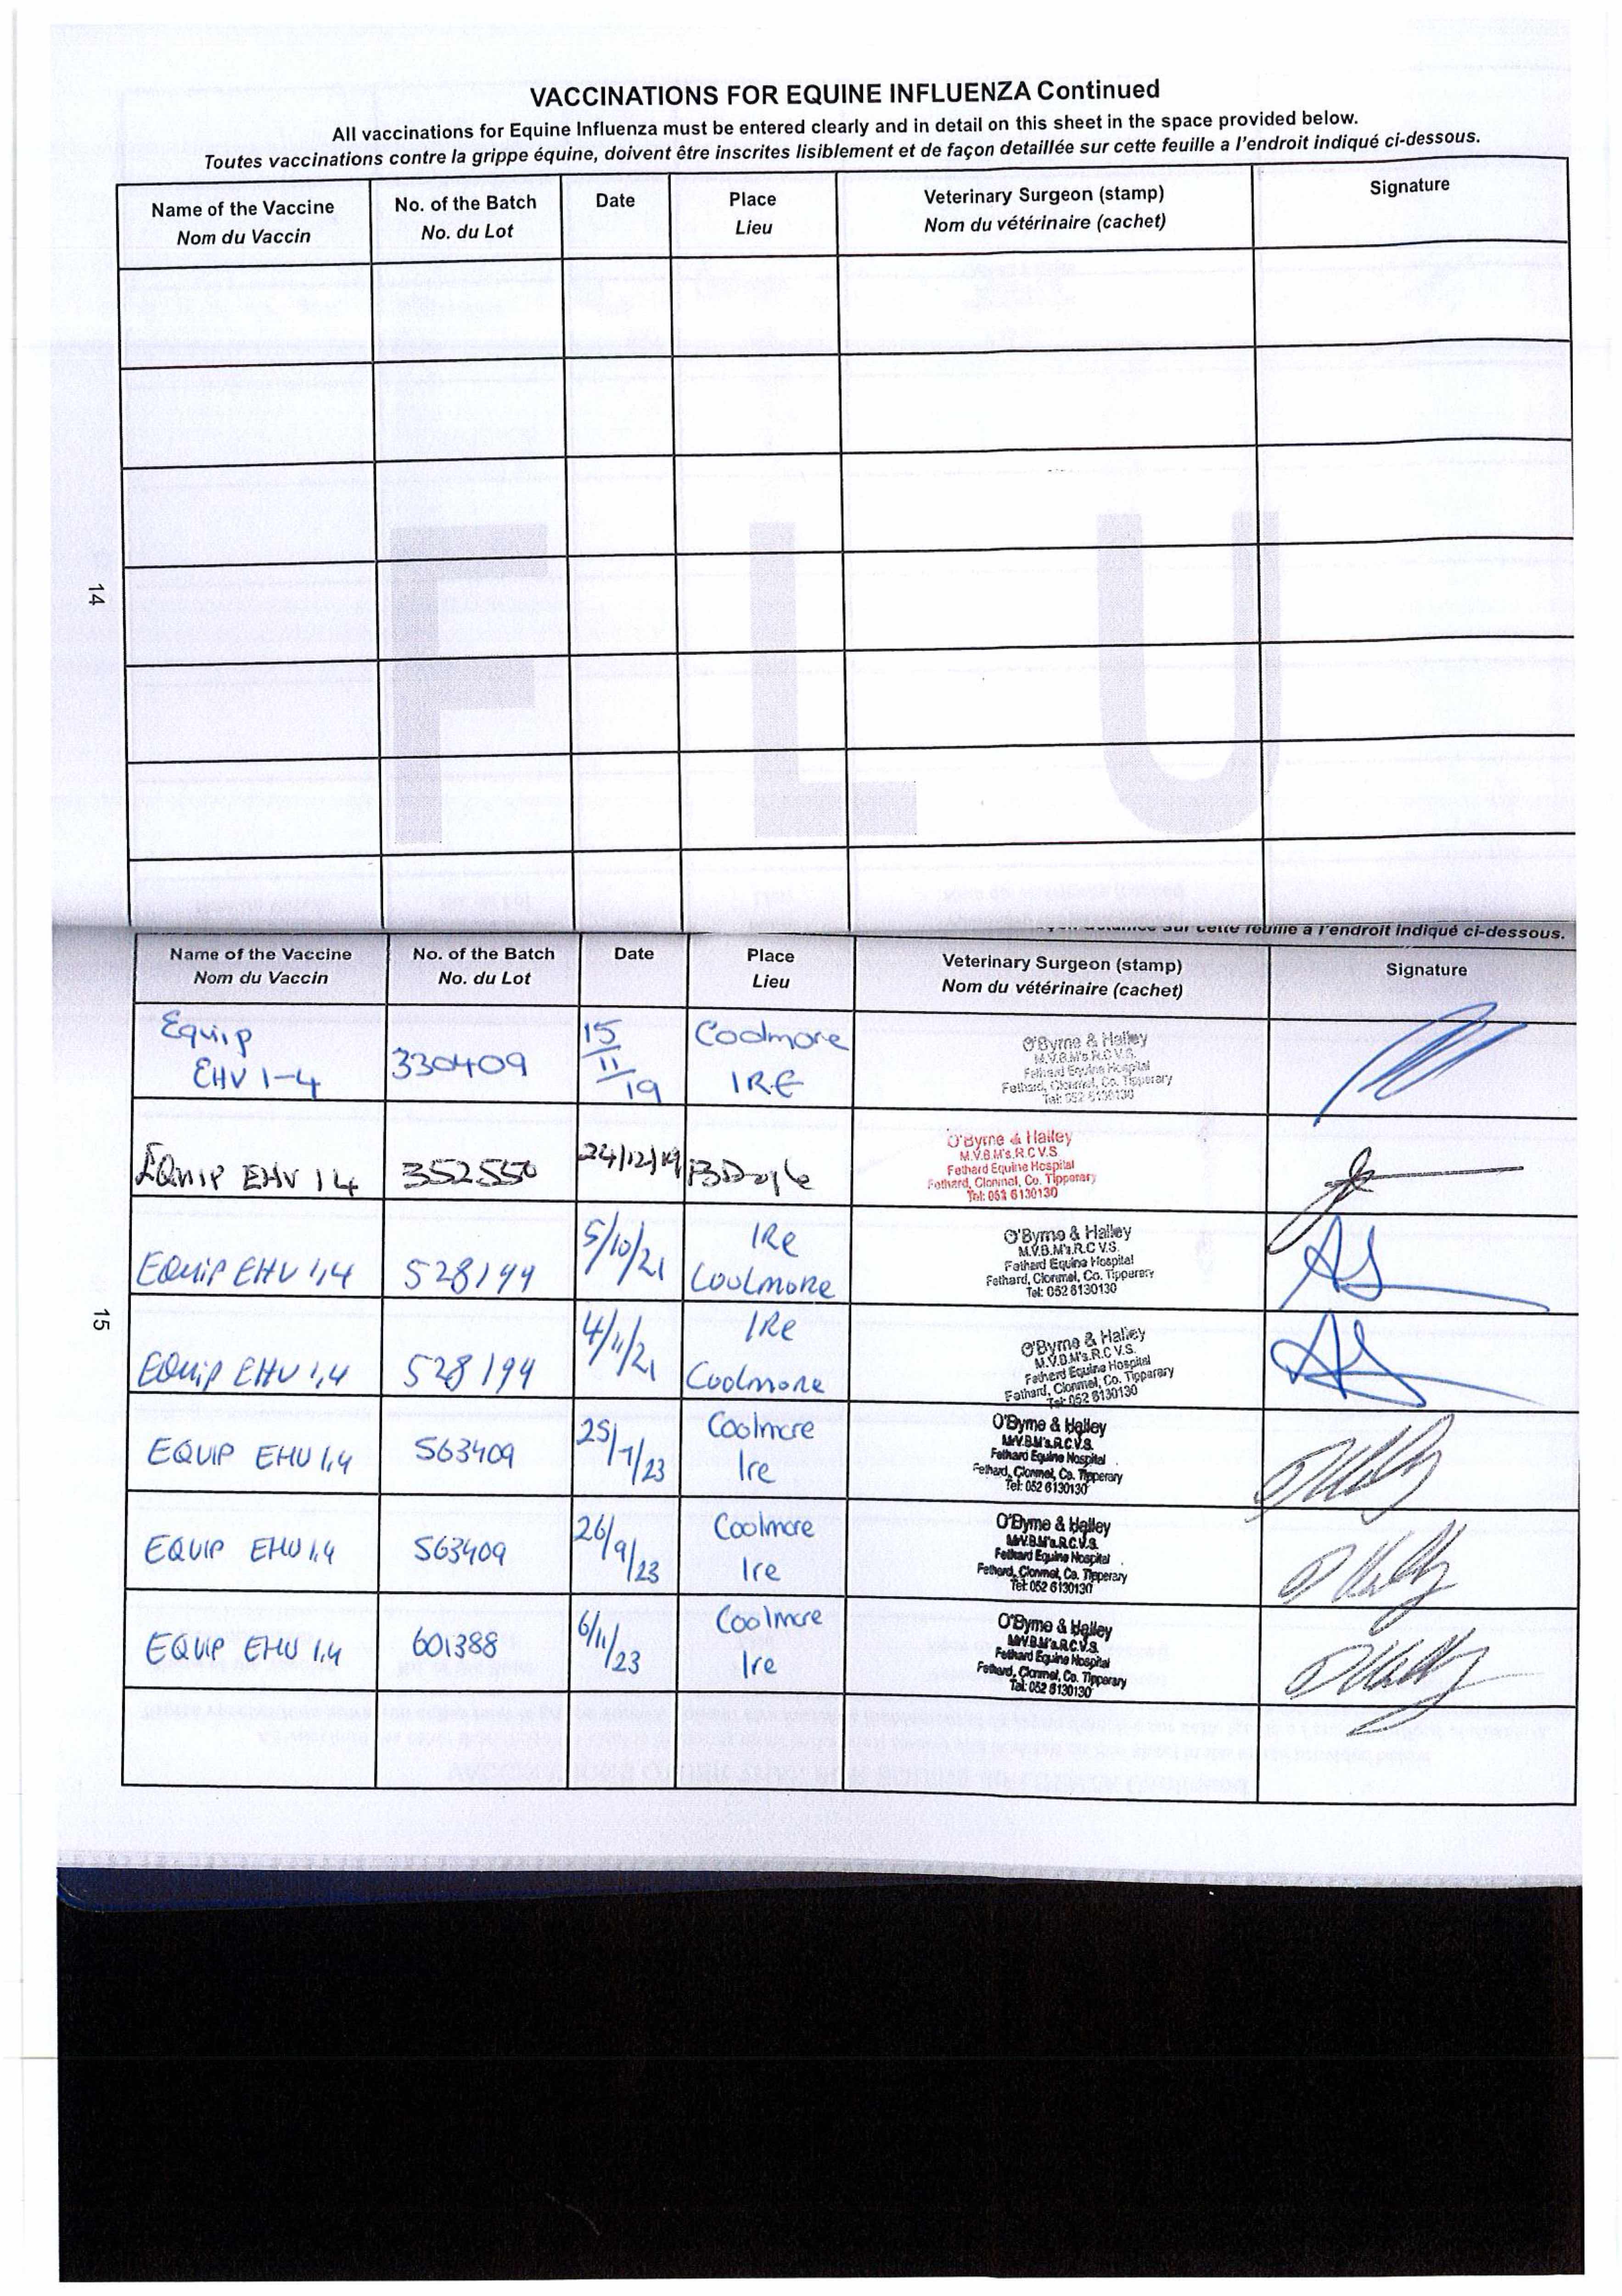 VACCINATIONS FOR EQUINE INFLUENZA Continued
All vaccinations for Equine Influenza must be entered clearly and in detail on this sheet in the space provided below.
Toutes vaccinations contre la grippe équine, doivent être inscrites lisiblement et de façon detaillée sur cette feuille a l'endroit indiqué ci-dessous.
Name of the Vaccine
Nom du Vaccin
No. of the Batch
No. du Lot
Date
Place
Lieu
Veterinary Surgeon (stamp)
Nom du vétérinaire (cachet)
Signature
FLU
14
sur cette feuille a l'endroit indiqué ci-dessous.
Name of the Vaccine
Nom du Vaccin
No. of the Batch
No. du Lot
Date
Place
Lieu
Veterinary Surgeon (stamp)
Nom du vétérinaire (cachet)
Signature
Equip
EHV 1-4
330409
15/11/19
Coolmore
IRE
O'Byrne & Halley
M.V.B.M's.R.C.V.S.
Fethard Equine Hospital
Fethard, Clonmel, Co. Tipperary
Tel: 052 6130130
EQUIP EHV 14
352550
24/12/19
O'Byrne & Halley
M.V.B.M's.R.C.V.S
Fethard Equine Hospital
Fethard, Clonmel, Co. Tipperary
Tel: 052 6130130
EQUIP EHV 1,4
528194
5/10/21
IRe
Coolmore
O'Byrne & Halley
M.V.B.M's.R.C V.S.
Fethard Equine Hospital
Fethard, Clonmel, Co. Tipperary
Tel: 052 6130130
15
EQUIP EHV 1,4
528194
4/11/21
IRe
Coolmore
O'Byrne & Halley
M.V.B.M's.R.C V.S.
Fethard Equine Hospital
Fethard, Clonmel, Co. Tipparary
Tel: 052 6130130
EQUIP EHV 1,4
563409
25/7/23
Coolmore
Ire
O'Byrne & Halley
M.V.B.M's.R.C.V.S.
Fethard Equine Hospital
Fethard, Clonmel, Co. Tipperary
Tel: 052 6130130
EQUIP EHV 1,4
563409
26/9/23
Coolmore
Ire
O'Byrne & Halley
M.V.B.M's.R.C.V.S.
Fethard Equine Hospital
Fethard, Clonmel, Co. Tipperary
Tel: 052 6130130
EQUIP EHV 1,4
601388
6/11/23
Coolmore
Ire
O'Byrne & Halley
M.V.B.M's.R.C.V.S.
Fethard Equine Hospital
Fethard, Clonmel, Co. Tipperary
Tel: 052 6130130